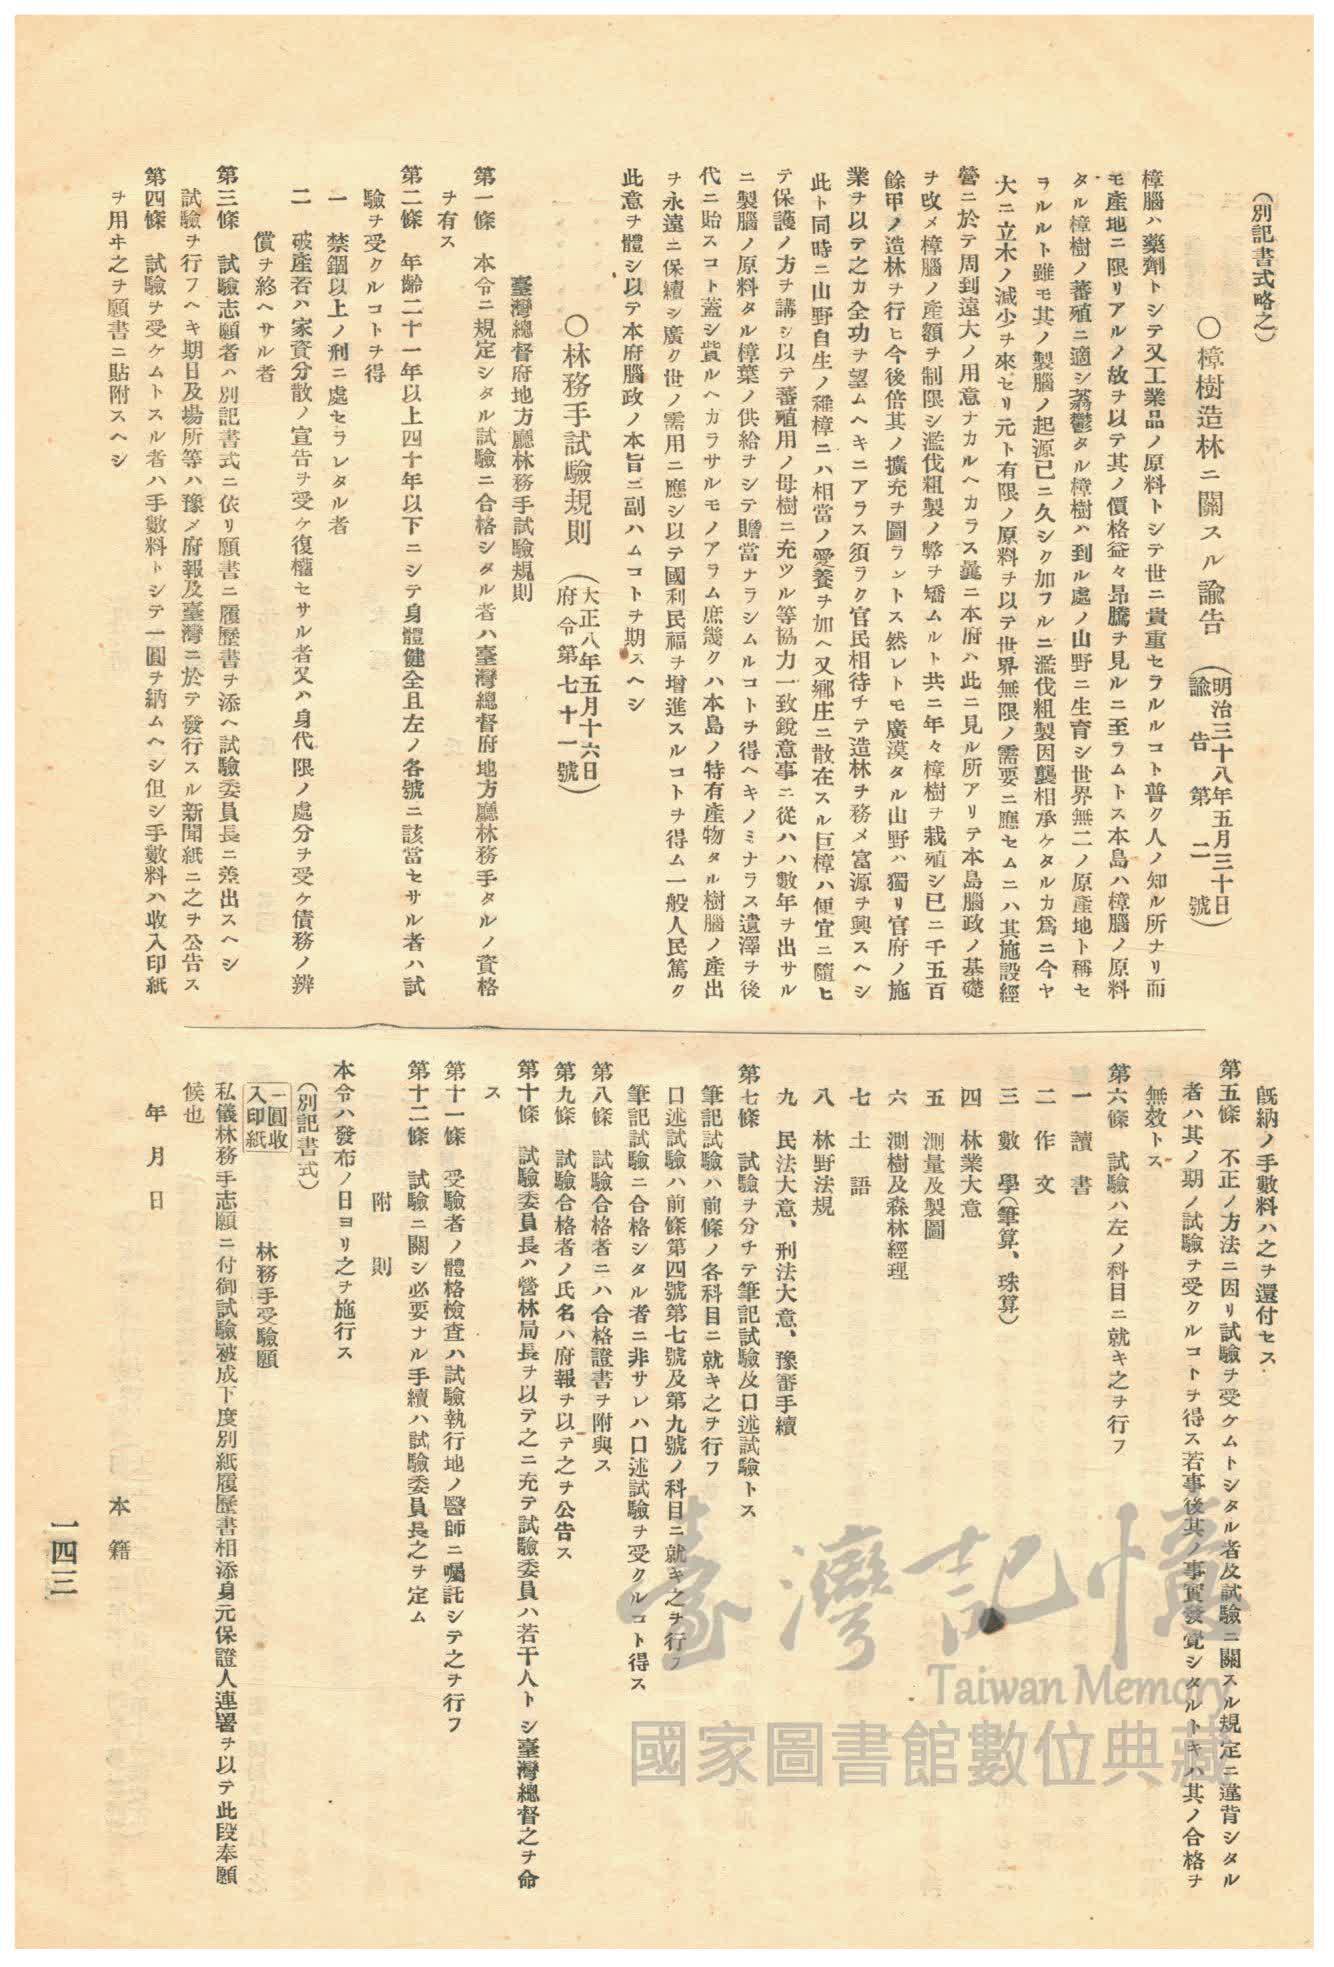 (別記書式略之)
○樟樹造林ニ關スル諭告 (明治三十八年五月三十日)
諭告第二號
樟腦ハ藥劑トシテ又工業品ノ原料トシテ世ニ貴重セラルルコト普ク人ノ知ル所ナリ而
モ產地ニ限リアルノ故ヲ以テ其ノ價格益々昂騰ヲ見ルニ至ラムトス本島ハ樟腦ノ原料
タル樟樹ノ蕃殖ニ適シ蓊鬱タル樟樹ハ到ル處ノ山野ニ生育シ世界無二ノ原產地ト稱セ
ラルルト雖モ其ノ製腦ノ起源已ニ久シク加フルニ濫伐粗製因襲相承ケタルカ爲ニ今ヤ
大ニ立木ノ減少ヲ來セリ元ト有限ノ原料ヲ以テ世界無限ノ需要ニ應セムニハ其施設經
營ニ於テ周到遠大ノ用意ナカルヘカラス曩ニ本府ハ此ニ見ル所アリテ本島腦政ノ基礎
ヲ改メ樟腦ノ產額ヲ制限シ濫伐粗製ノ弊ヲ矯ムルト共ニ年々樟樹ヲ栽殖シ已ニ千五百
餘甲ノ造林ヲ行ヒ今後倍其ノ擴充ヲ圖ラントス然レトモ廣漠タル山野ハ獨リ官府ノ施
業ヲ以テ之カ全功ヲ望ムヘキニアラス須ラク官民相待チテ造林ヲ務メ富源ヲ興スヘシ
此ト同時ニ山野自生ノ稚樟ニハ相當ノ愛養ヲ加ヘ又鄉庄ニ散在スル巨樟ハ便宜ニ隨ヒ
テ保護ノ方ヲ講シ以テ蕃殖用ノ母樹ニ充ツル等協力一致銳意事ニ從ハハ數年ヲ出サル
ニ製腦ノ原料タル樟葉ノ供給ヲシテ贍當ナラシムルコトヲ得ヘキノミナラス遺澤ヲ後
代ニ貽スコト蓋シ貲ルヘカラサルモノアラム庶幾クハ本島ノ特有產物タル樹腦ノ產出
ヲ永遠ニ保續シ廣ク世ノ需用ニ應シ以テ國利民福ヲ增進スルコトヲ得ム一般人民篤ク
此意ヲ體シ以テ本府腦政ノ本旨ニ副ハムコトヲ期スヘシ
○林務手試驗規則 (大正八年五月十六日)
府令第七十一號
臺灣總督府地方廳林務手試驗規則
第一條 本令ニ規定シタル試驗ニ合格シタル者ハ臺灣總督府地方廳林務手タルノ資格
ヲ有ス
第二條 年齡二十一年以上四十年以下ニシテ身體健全且左ノ各號ニ該當セサル者ハ試
驗ヲ受クルコトヲ得
一 禁錮以上ノ刑ニ處セラレタル者
二 破產若ハ家資分散ノ宣告ヲ受ケ復權セサル者又ハ身代限ノ處分ヲ受ケ債務ノ辨
償ヲ終ヘサル者
第三條 試驗志願者ハ別記書式ニ依リ願書ニ履歷書ヲ添ヘ試驗委員長ニ差出スヘシ
試驗ヲ行フヘキ期日及場所等ハ豫メ府報及臺灣ニ於テ發行スル新聞紙ニ之ヲ公告ス
第四條 試驗ヲ受ケムトスル者ハ手數料トシテ一圓ヲ納ムヘシ但シ手數料ハ收入印紙
ヲ用ヰ之ヲ願書ニ貼附スヘシ
旣納ノ手數料ハ之ヲ還付セス
第五條 不正ノ方法ニ因リ試驗ヲ受ケムトシタル者及試驗ニ關スル規定ニ違背シタル
者ハ其ノ期ノ試驗ヲ受クルコトヲ得ス若事後其ノ事實發覺シタルトキハ其ノ合格ヲ
無效トス
第六條 試驗ハ左ノ科目ニ就キ之ヲ行フ
一 讀書
二 作文
三 數學(筆算、珠算)
四 林業大意
五 測量及製圖
六 測樹及森林經理
七 土語
八 林野法規
九 民法大意、刑法大意、豫審手續
第七條 試驗ヲ分チテ筆記試驗及口述試驗トス
筆記試驗ハ前條ノ各科目ニ就キ之ヲ行フ
口述試驗ハ前條第四號第七號及第九號ノ科目ニ就キ之ヲ行フ
筆記試驗ニ合格シタル者ニ非サレハ口述試驗ヲ受クルコト得ス
第八條 試驗合格者ニハ合格證書ヲ附與ス
第九條 試驗合格者ノ氏名ハ府報ヲ以テ之ヲ公告ス
第十條 試驗委員長ハ營林局長ヲ以テ之ニ充テ試驗委員ハ若干人トシ臺灣總督之ヲ命
ス
第十一條 受驗者ノ體格檢査ハ試驗執行地ノ醫師ニ囑託シテ之ヲ行フ
第十二條 試驗ニ關シ必要ナル手續ハ試驗委員長之ヲ定ム
附則
本令ハ發布ノ日ヨリ之ヲ施行ス
(別記書式)
一圓收
入印紙
林務手受驗願
私儀林務手志願ニ付御試驗被成下度別紙履歷書相添身元保證人連署ヲ以テ此段奉願
候也
年月日
本籍
一四三
臺灣記憶
Taiwan Memory
國家圖書館數位典藏